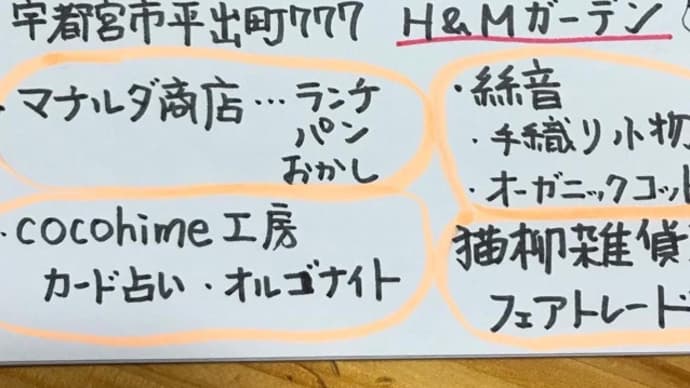 宇都宮市平出町777 H&Mガーデン
・マナルダ商店…ランチ
パン
おかし
・絲音
・手織り小物
・オーガニックコット
・cocohime工房
カード占い・オルゴナイト
猫柳雑貨
フェアトレード